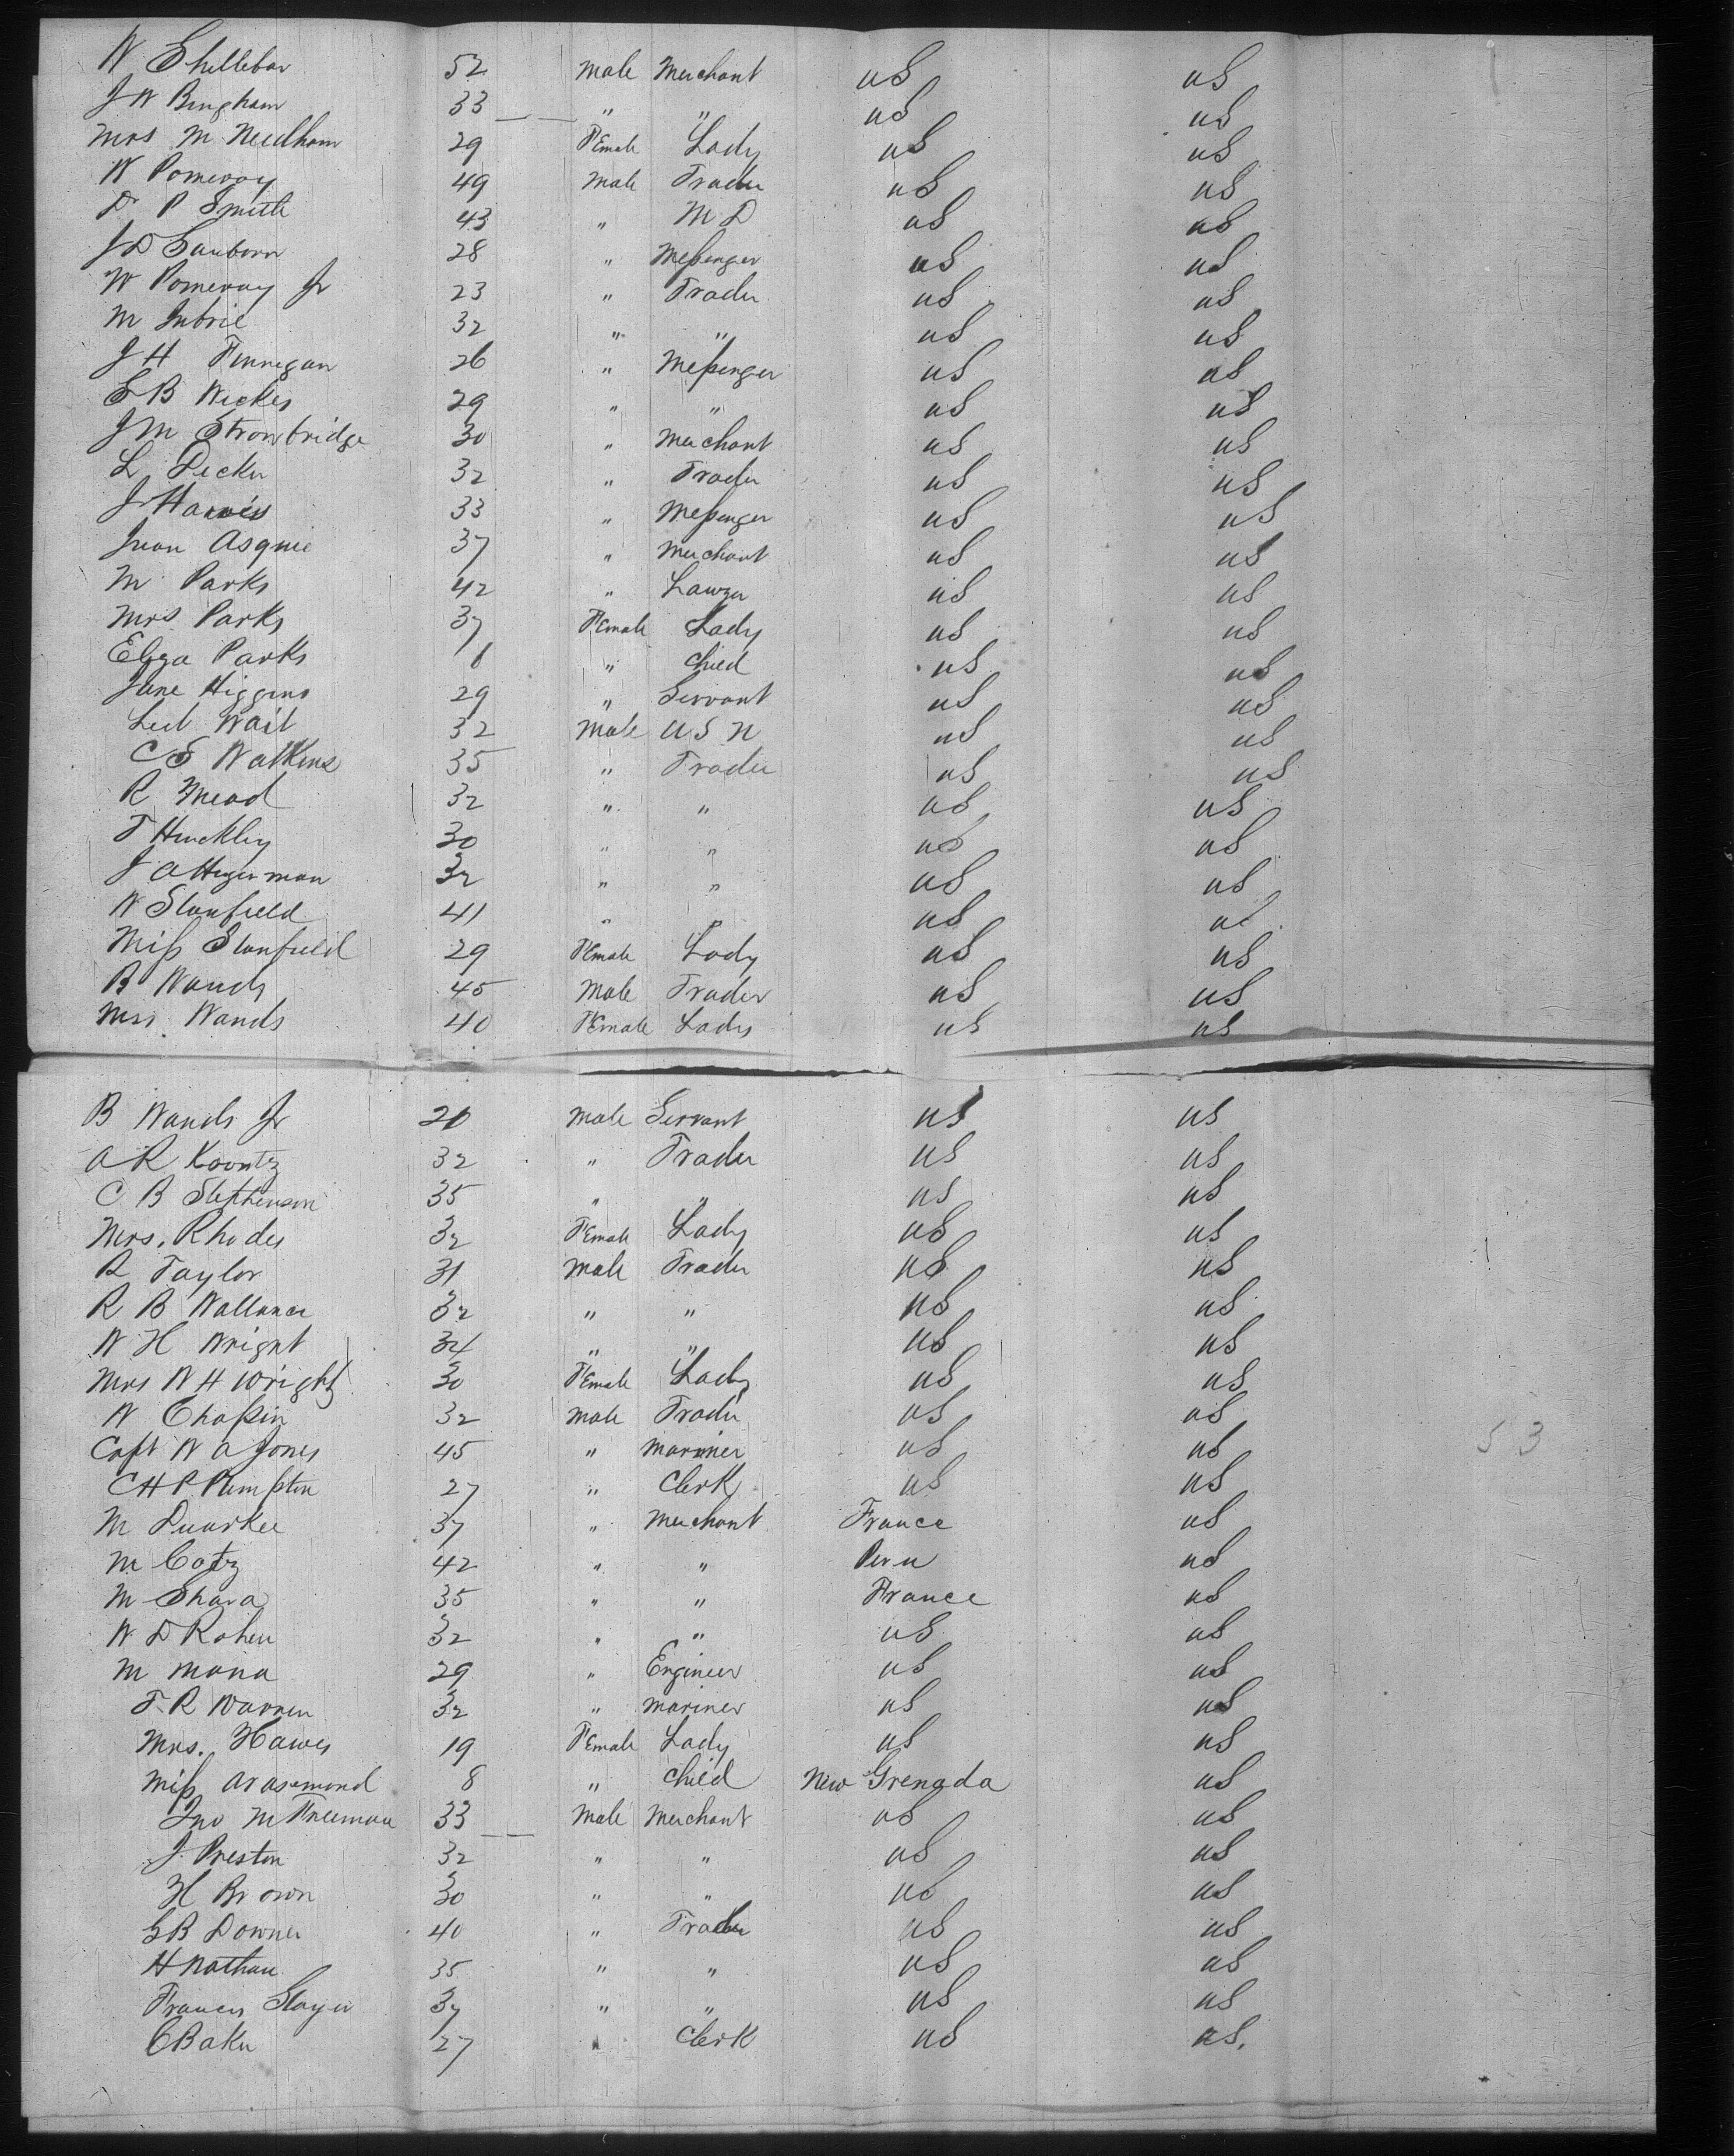 W Shellebar 52 Male Merchant US US
J W Bingham 33 " " US US
Mrs M Needham 29 Female Lady US US
W Pomeroy 49 Male Trader US US
Dr P Smith 43 " M D US US
J D Sanborn 28 " Messenger US US
W Pomeroy Jr 23 " Trader US US
M Jubrie 32 " " US US
J H Finnegan 26 " Messenger US US
S B Wickes 29 " " US US
J M Strowbridge 30 " Merchant US US
L Decker 32 " Trader US US
J Harris 33 " Messenger US US
Juan Asque 37 " Merchant US US
M Parks 42 " Lawyer US US
Mrs Parks 37 Female Lady US US
Eliza Parks 6 " Child US US
Jane Higgins 29 " Servant US US
Leut Wait 32 Male U S N US US
C S Watkins 35 " Trader US US
R Mead 32 " " US US
T Hinckley 30 " " US US
J A Hegerman 32 " " US US
W Stanfield 41 " " US US
Miss Stanfield 29 Female Lady US US
B Wands 45 Male Trader US US
Mrs Wands 40 Female Lady US US
B Wands Jr 20 Male Servant US US
A R Koontz 32 " Trader US US
C B Stephenson 35 " " US US
Mrs. Rhodes 32 Female Lady US US
R Taylor 31 Male Trader US US
R B Wallance 32 " " US US
W H Wright 34 " " US US
Mrs W H Wright 30 Female Lady US US
W Chapin 32 Male Trader US US
Capt W A Jones 45 " Mariner US US 53
C H P Plimpton 27 " Clerk US US
M Duarkee 37 " Merchant France US
M Cotz 42 " " Peru US
M Shara 35 " " France US
W D Rohen 32 " " US US
M Mana 29 " Engineer US US
T. R Warren 32 " Mariner US US
Mrs. Hawes 19 Female Lady US US
Miss Arasemond 8 " Child New Grenada US
Jno M Freeman 33 Male Merchant US US
J. Preston 32 " " US US
H Brown 30 " " US US
G B Downer 40 " Trader US US
H Nathan 35 " " US US
Frances Slayer 37 " " US US
C Baker 27 " Clerk US US.